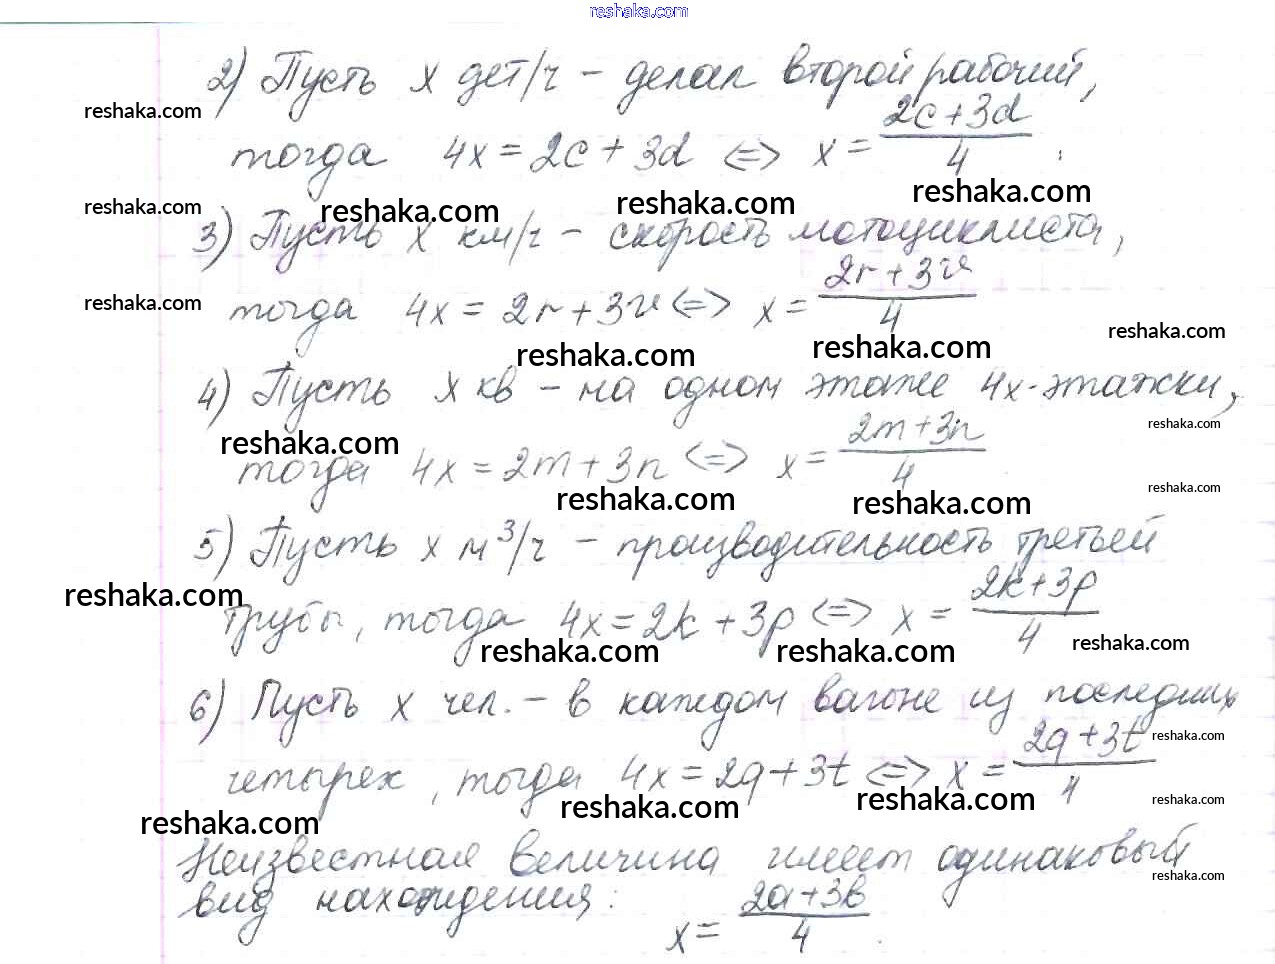 reshaka.com
2) Пусть x дет/ч – делал второй рабочий,
reshaka.com
тогда 4x = 2c + 3d <=> x = (2c + 3d)/4 .
reshaka.com reshaka.com reshaka.com reshaka.com
3) Пусть x км/ч – скорость мотоциклиста,
тогда 4x = 2r + 3v <=> x = (2r + 3v)/4
reshaka.com reshaka.com
reshaka.com reshaka.com
4) Пусть x кв – на одном этаже 4x-этажки,
reshaka.com reshaka.com
тогда 4x = 2m + 3n <=> x = (2m + 3n)/4
reshaka.com reshaka.com reshaka.com
5) Пусть x м³/ч – производительность третьей
reshaka.com
трубы, тогда 4x = 2k + 3p <=> x = (2k + 3p)/4
reshaka.com reshaka.com reshaka.com
6) Пусть x чел. – в каждом вагоне из последних
reshaka.com
четырех, тогда 4x = 2q + 3t <=> x = (2q + 3t)/4
reshaka.com reshaka.com reshaka.com reshaka.com
Неизвестная величина имеет одинаковый
reshaka.com
вид нахождения:
x = (2a + 3b)/4 .